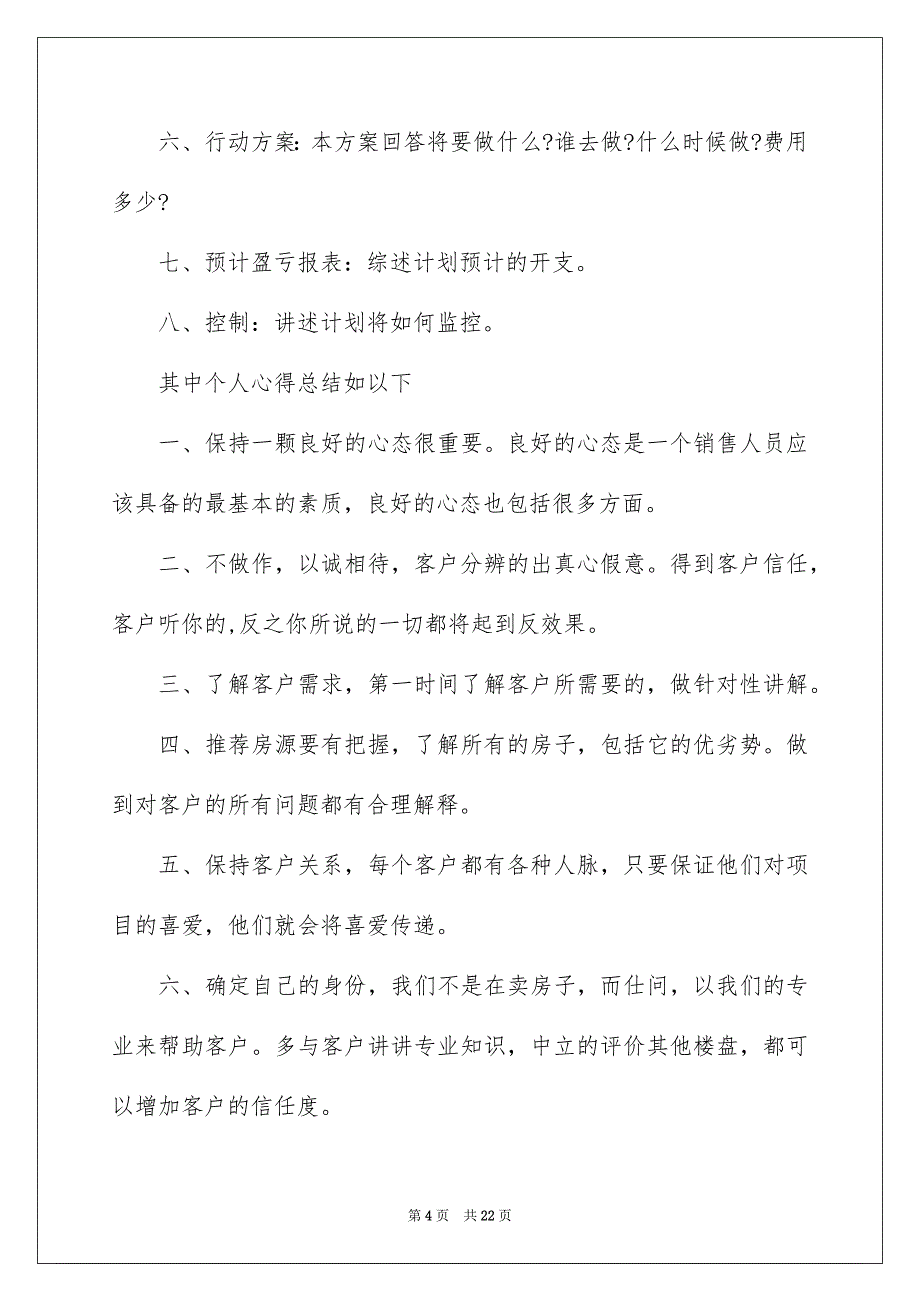 六、行动方案：本方案回答将要做什么?谁去做?什么时候做?费用
多少?
七、预计盈亏报表：综述计划预计的开支。
八、控制：讲述计划将如何监控。
其中个人心得总结如以下
一、保持一颗良好的心态很重要。良好的心态是一个销售人员应
该具备的最基本的素质，良好的心态也包括很多方面。
二、不做作，以诚相待，客户分辨的出真心假意。得到客户信任，
客户听你的,反之你所说的一切都将起到反效果。
三、了解客户需求，第一时间了解客户所需要的，做针对性讲解。
四、推荐房源要有把握，了解所有的房子，包括它的优劣势。做
到对客户的所有问题都有合理解释。
五、保持客户关系，每个客户都有各种人脉，只要保证他们对项
目的喜爱，他们就会将喜爱传递。
六、确定自己的身份，我们不是在卖房子，而仕问，以我们的专
业来帮助客户。多与客户讲讲专业知识，中立的评价其他楼盘，都可
以增加客户的信任度。
第 4 页 共 22 页